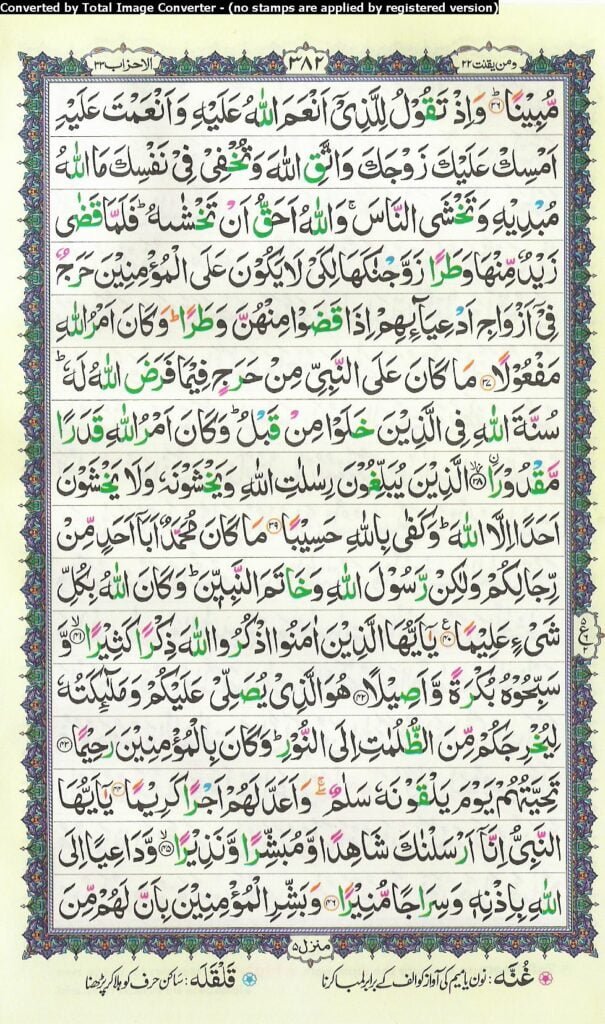 Converted by Total Image Converter - (no stamps are applied by registered version)
ومن یقنت ۲۲
۳۸۲
الاحزاب ۳۳
مُّبِيْنًا ؕ۳۶ وَاِذْ تَقُوْلُ لِلَّذِیْۤ اَنْعَمَ اللّٰهُ عَلَيْهِ وَاَنْعَمْتَ عَلَيْهِ
اَمْسِكْ عَلَيْكَ زَوْجَكَ وَاتَّقِ اللّٰهَ وَتُخْفِیْ فِیْ نَفْسِكَ مَا اللّٰهُ
مُبْدِيْهِ وَتَخْشَی النَّاسَ ۚ وَاللّٰهُ اَحَقُّ اَنْ تَخْشٰىهُ ؕ فَلَمَّا قَضٰی
زَيْدٌ مِّنْهَا وَطَرًا زَوَّجْنٰكَهَا لِكَیْ لَا يَكُوْنَ عَلَی الْمُؤْمِنِيْنَ حَرَجٌ
فِیْۤ اَزْوَاجِ اَدْعِيَآئِهِمْ اِذَا قَضَوْا مِنْهُنَّ وَطَرًا ؕ وَكَانَ اَمْرُ اللّٰهِ
مَفْعُوْلًا ۳۷ مَا كَانَ عَلَی النَّبِیِّ مِنْ حَرَجٍ فِيْمَا فَرَضَ اللّٰهُ لَهٗ ؕ
سُنَّةَ اللّٰهِ فِی الَّذِيْنَ خَلَوْا مِنْ قَبْلُ ؕ وَكَانَ اَمْرُ اللّٰهِ قَدَرًا
مَّقْدُوْرَا ۙ۳۸ الَّذِيْنَ يُبَلِّغُوْنَ رِسٰلٰتِ اللّٰهِ وَيَخْشَوْنَهٗ وَلَا يَخْشَوْنَ
اَحَدًا اِلَّا اللّٰهَ ؕ وَكَفٰی بِاللّٰهِ حَسِيْبًا ۳۹ مَا كَانَ مُحَمَّدٌ اَبَاۤ اَحَدٍ مِّنْ
رِّجَالِكُمْ وَلٰكِنْ رَّسُوْلَ اللّٰهِ وَخَاتَمَ النَّبِيّٖنَ ؕ وَكَانَ اللّٰهُ بِكُلِّ
شَیْءٍ عَلِيْمًا ۴۰ع يٰۤاَيُّهَا الَّذِيْنَ اٰمَنُوا اذْكُرُوا اللّٰهَ ذِكْرًا كَثِيْرًا ۙ۴۱ وَّ
سَبِّحُوْهُ بُكْرَةً وَّاَصِيْلًا ۴۲ هُوَ الَّذِیْ يُصَلِّیْ عَلَيْكُمْ وَمَلٰٓئِكَتُهٗ
لِيُخْرِجَكُمْ مِّنَ الظُّلُمٰتِ اِلَی النُّوْرِ ؕ وَكَانَ بِالْمُؤْمِنِيْنَ رَحِيْمًا ۴۳
تَحِيَّتُهُمْ يَوْمَ يَلْقَوْنَهٗ سَلٰمٌ ۖۚ وَاَعَدَّ لَهُمْ اَجْرًا كَرِيْمًا ۴۴ يٰۤاَيُّهَا
النَّبِیُّ اِنَّاۤ اَرْسَلْنٰكَ شَاهِدًا وَّمُبَشِّرًا وَّنَذِيْرًا ۙ۴۵ وَّدَاعِيًا اِلَی
اللّٰهِ بِاِذْنِهٖ وَسِرَاجًا مُّنِيْرًا ۴۶ وَبَشِّرِ الْمُؤْمِنِيْنَ بِاَنَّ لَهُمْ مِّنَ
منزل ۵
غُنَّه: نون یا میم کی آواز کو الف کے برابر لمبا کرنا
قَلْقَلَه: ساکن حرف کو ہلا کر پڑھنا